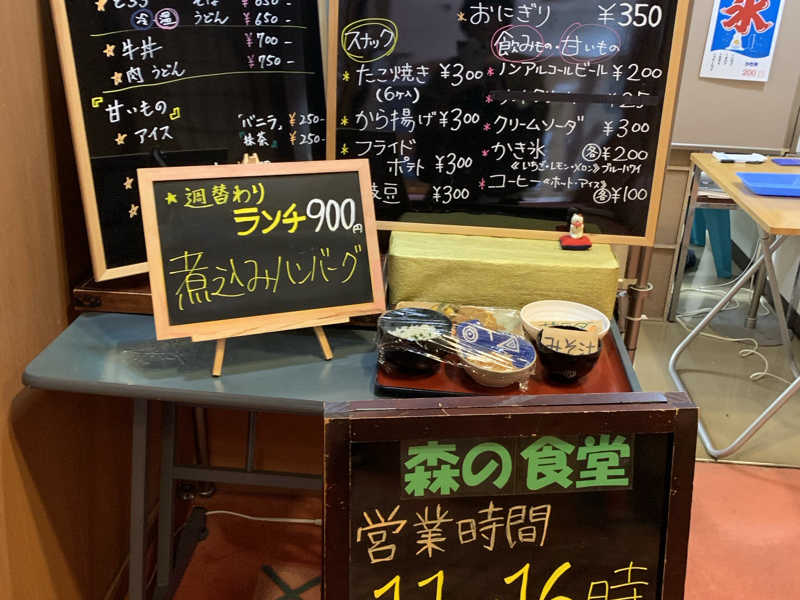 とろろ そば ¥650-
冷 温 うどん ¥650-
★牛丼 ¥700-
★肉うどん ¥750-
『甘いもの』
★アイス 「バニラ」 ¥250-
『抹茶』 ¥250-
*おにぎり ¥350
スナック
*たこ焼き ¥300
(6ケ入)
*から揚げ ¥300
*フライド
ポテト ¥300
枝豆 ¥300
飲みもの・甘いもの
*ノンアルコールビール ¥200
*クリームソーダ ¥300
*かき氷 各¥200
《いちご・レモン・メロン》ブルーハワイ
*コーヒー《ホット・アイス》 各¥100
氷
200
★週替わり
ランチ900円
煮込みハンバーグ
森の食堂
営業時間
11~16時